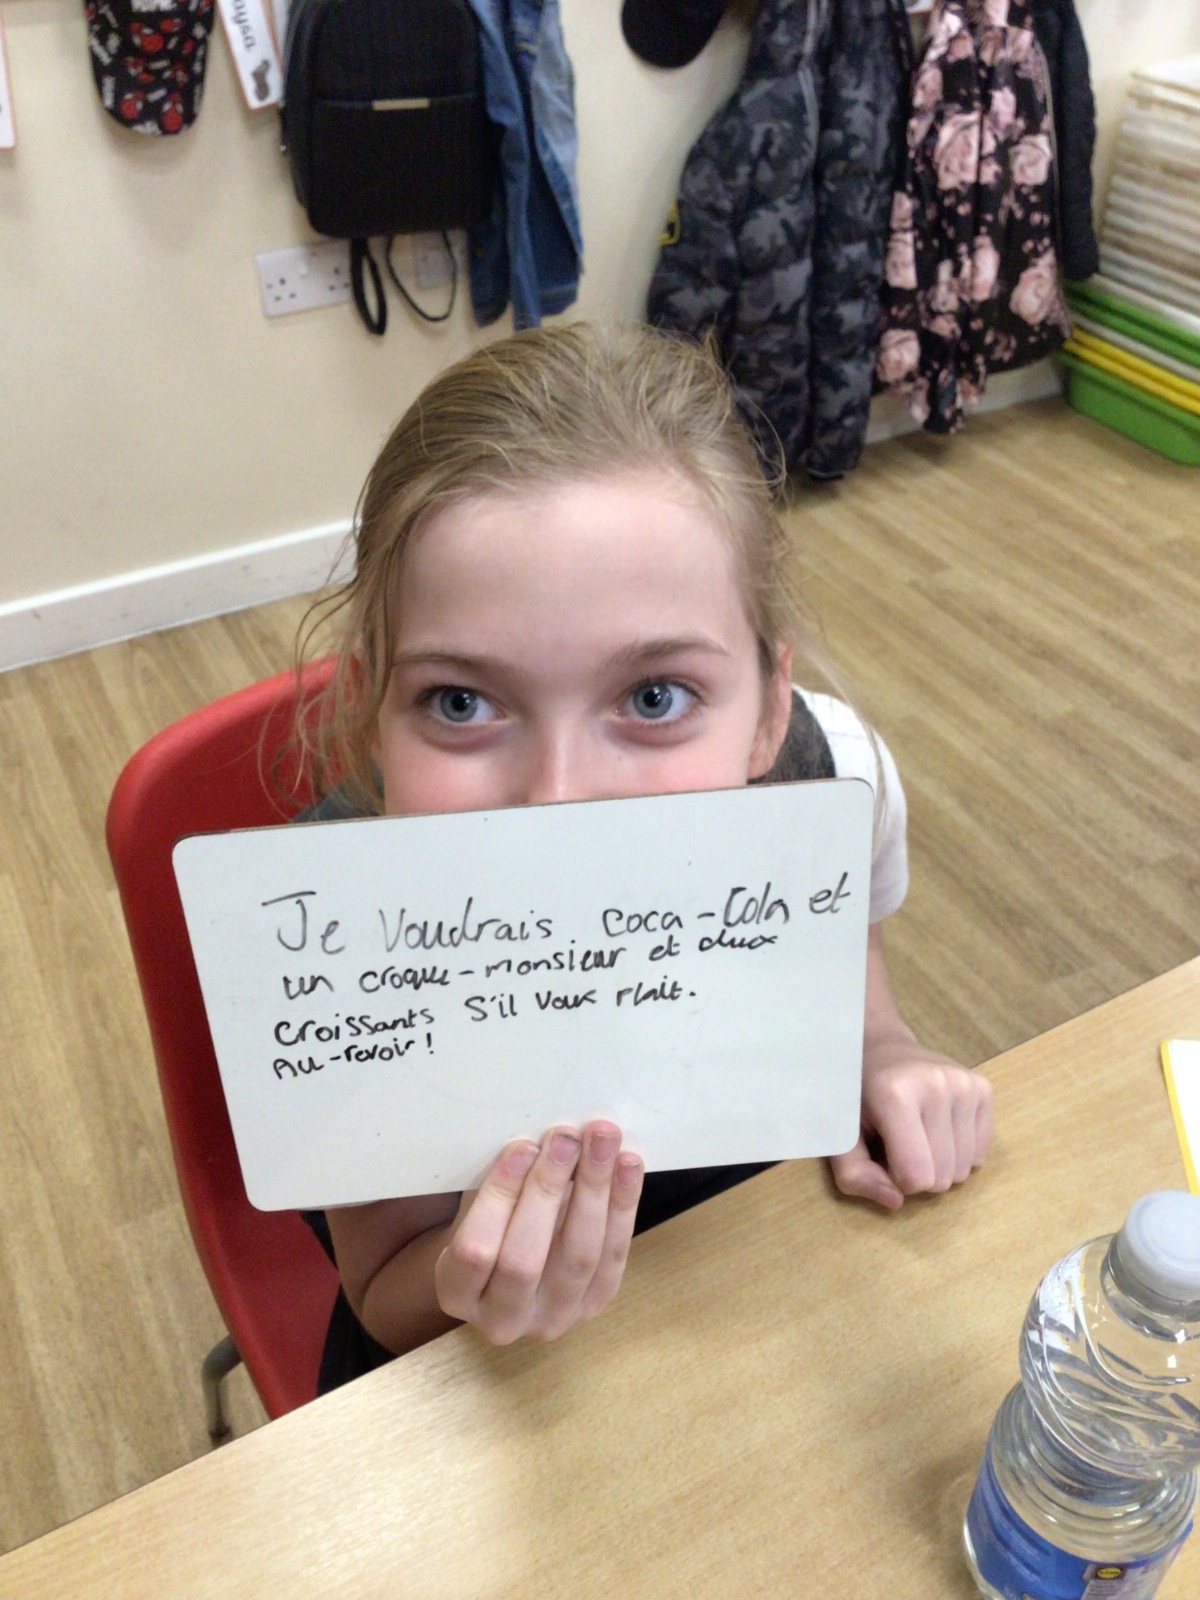 aysa
Je Voudrais Coca-Cola et
un croque-monsieur et deux
croissants S'il vous plait.
Au-revoir!